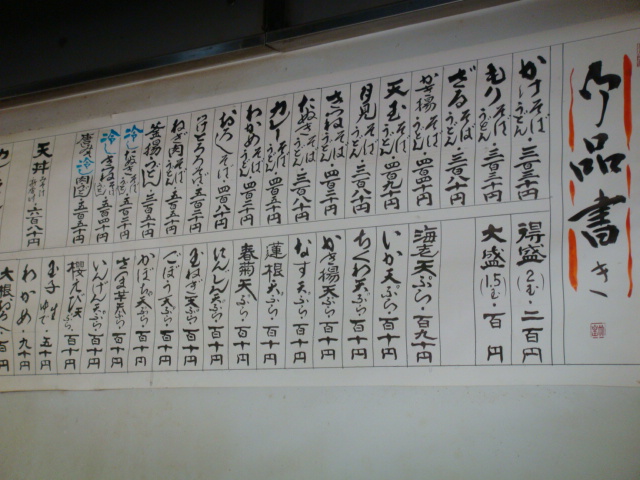 御品書き
かけそば うどん 三百三十円
もりそば うどん 三百三十円
ざるそば うどん 三百八十円
かき揚そば うどん 四百四十円
天玉そば うどん 四百九十円
月見そば うどん 三百八十円
きつねそば うどん 四百三十円
たぬきそば うどん 三百八十円
カレーそば うどん
わかめそば うどん 四百三十円
おろしそば 四百八十円
とろろそば
ねぎ肉そば うどん 五百五十円
釜揚うどん 三百五十円
冷したぬきそば うどん
冷しきつねそば うどん
冷し肉うどん 五百五十円
天丼 六百八十円
得盛(2む)・二百円
大盛(1.5む)・百円
海老天ぷら・百九十円
いか天ぷら・百十円
ちくわ天ぷら・百十円
かき揚天ぷら・百十円
なす天ぷら・百十円
蓮根天ぷら・百十円
春菊天ぷら・百十円
にんじん天ぷら・百十円
玉ねぎ天ぷら・百十円
ごぼう天ぷら・百十円
かぼちゃ天ぷら・百十円
さつま芋天ぷら・百十円
いんげん天ぷら・百十円
桜えび天ぷら・百十円
玉子 生 ゆで・五十円
わかめ 九十円
大根おろし 百円